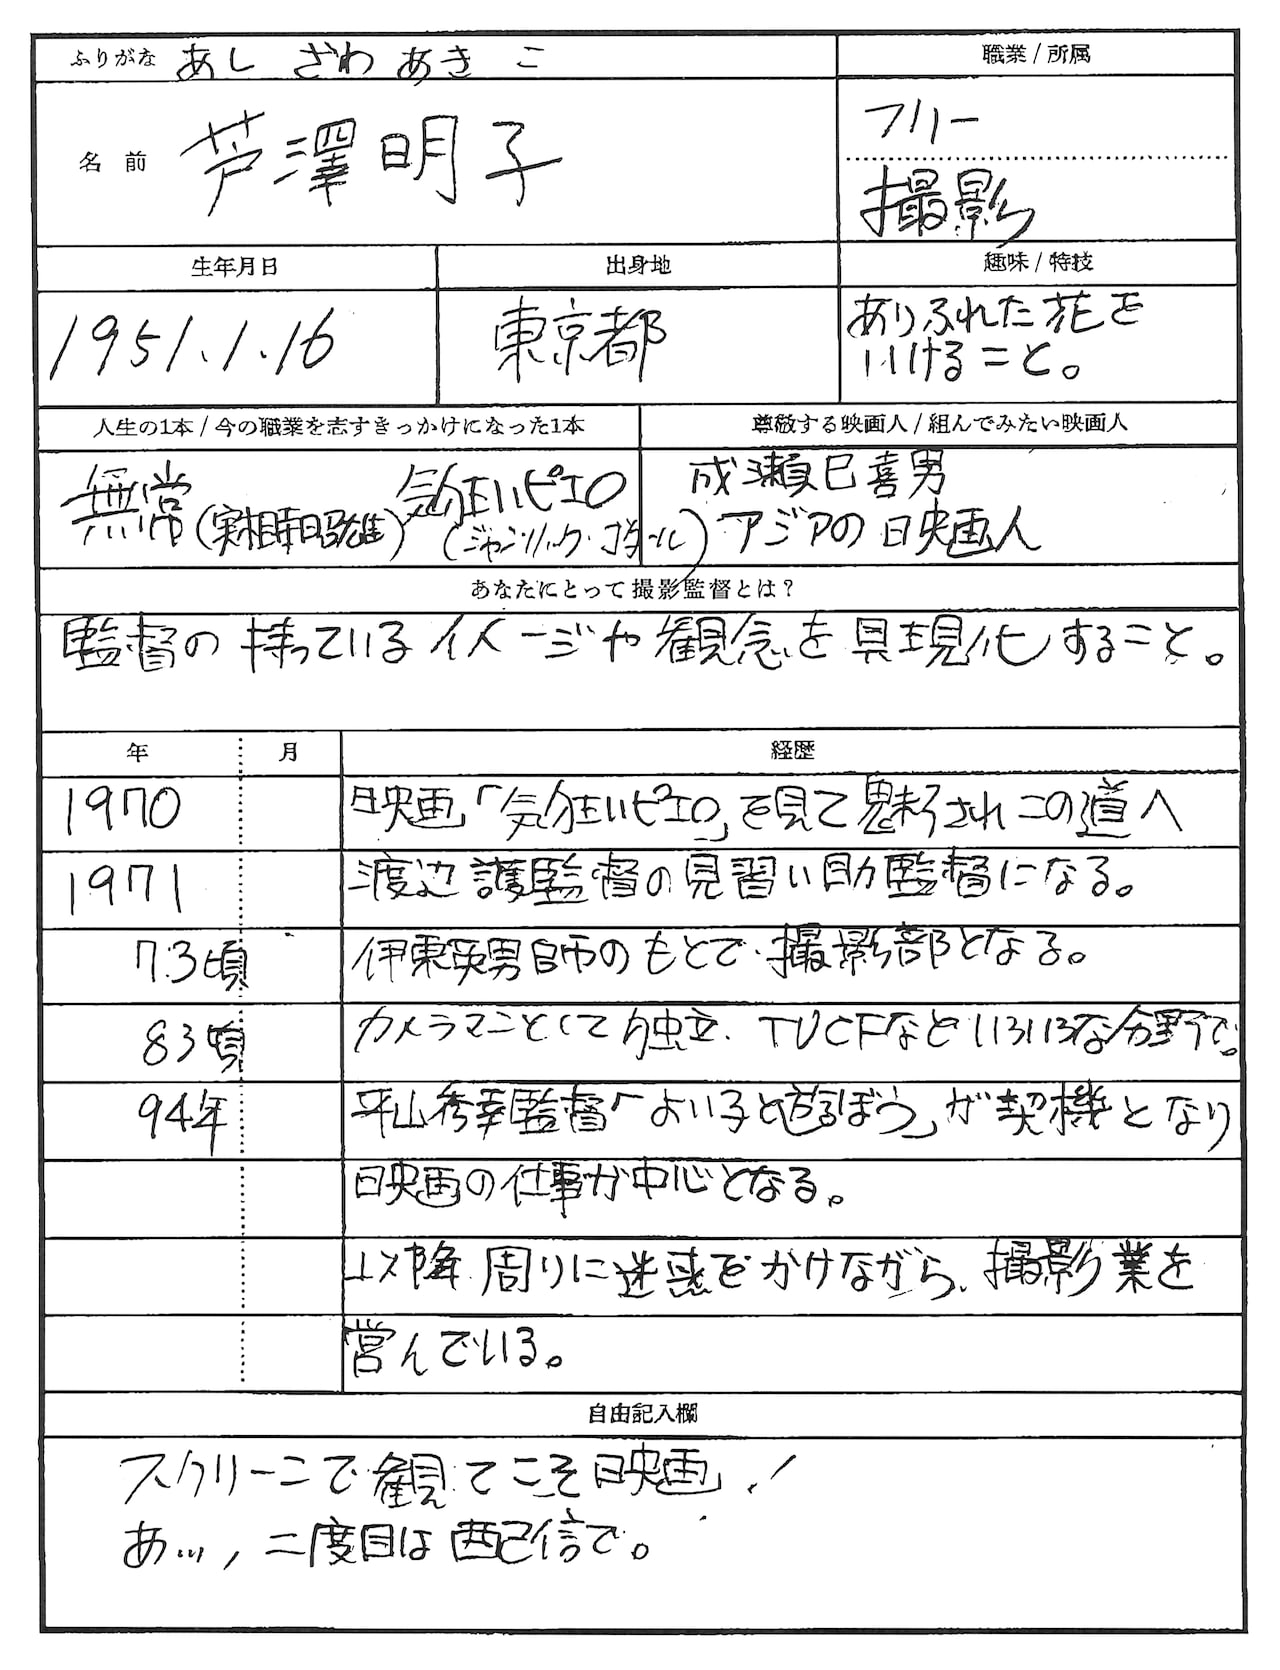 ふりがな あし ざわ あき こ
職業 / 所属
名前 芦澤明子
フリー
撮影
生年月日
出身地
趣味 / 特技
1951.1.16
東京都
ありふれた花を
いけること。
人生の1本 / 今の職業を志すきっかけになった1本
尊敬する映画人 / 組んでみたい映画人
無常(実相寺昭雄) 気狂いピエロ(ジャンリュック・ゴダール)
成瀬巳喜男
アジアの映画人
あなたにとって撮影監督とは?
監督の持っているイメージや観念を具現化すること。
年 月 経歴
1970 映画「気狂いピエロ」を見て魅了されこの道へ
1971 渡辺護監督の見習い助監督になる。
73頃 伊東英男師のもとで撮影部となる。
83頃 カメラマンとして独立、TVCFなどいろいろな分野で。
94年 平山秀幸監督「よい子と遊ぼう」が契機となり
映画の仕事が中心となる。
以降 周りに迷惑をかけながら、撮影業を
営んでいる。
自由記入欄
スクリーンで観てこそ映画!
あ…, 二度目は配信で。